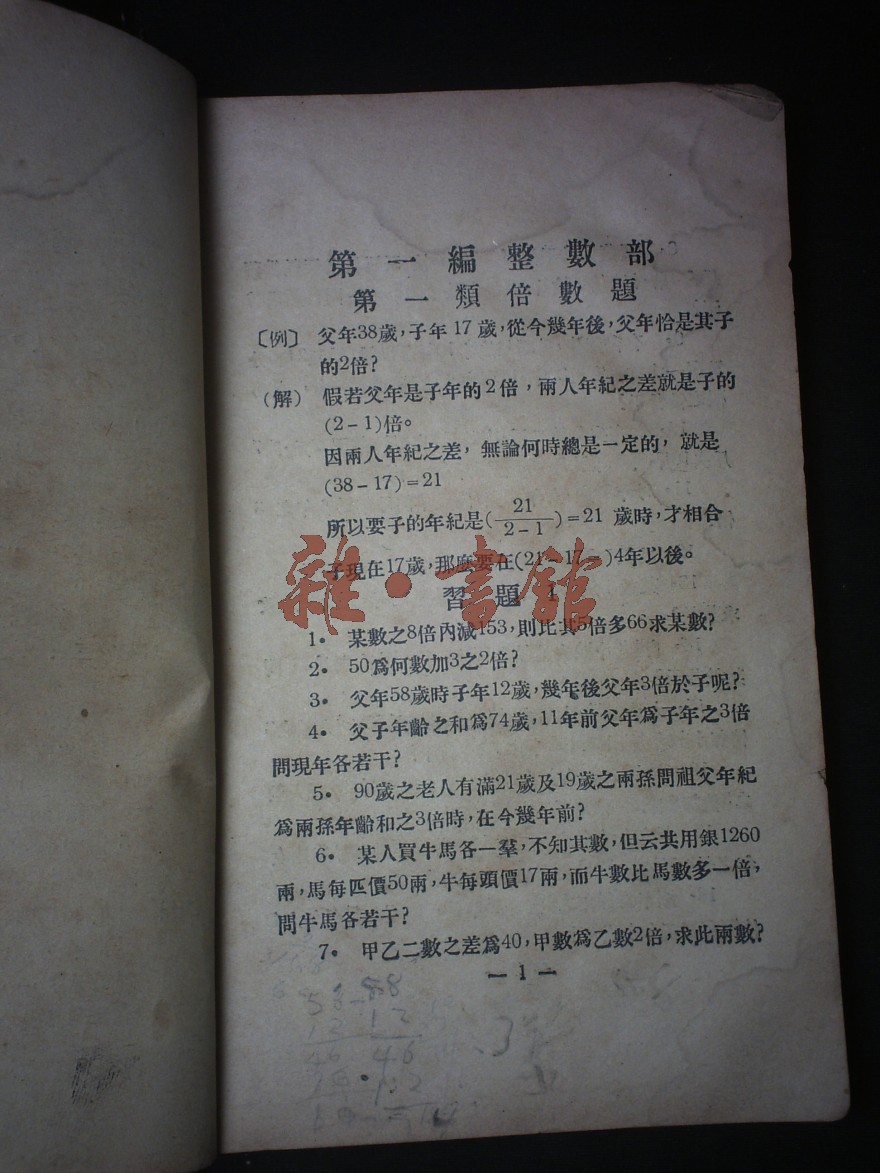 第一編 整數部
第一類 倍數題
〔例〕 父年38歲，子年17歲，從今幾年後，父年恰是其子
的2倍？
（解） 假若父年是子年的2倍，兩人年紀之差就是子的
(2－1)倍。
因兩人年紀之差，無論何時總是一定的，就是
(38－17)＝21
所以要子的年紀是(21/2－1)＝21 歲時，才相合
子現在17歲，那麼要在(21－17＝)4年以後。
雜·書館
習題 1
1. 某數之8倍內減153，則比其5倍多66求某數？
2. 50爲何數加3之2倍？
3. 父年58歲時子年12歲，幾年後父年3倍於子呢？
4. 父子年齡之和爲74歲，11年前父年爲子年之3倍
問現年各若干？
5. 90歲之老人有滿21歲及19歲之兩孫問祖父年紀
爲兩孫年齡和之3倍時，在今幾年前？
6. 某人買牛馬各一羣，不知其數，但云共用銀1260
兩，馬每匹價50兩，牛每頭價17兩，而牛數比馬數多一倍，
問牛馬各若干？
7. 甲乙二數之差爲40，甲數爲乙數2倍，求此兩數？
— 1 —
58
12 12
46 46